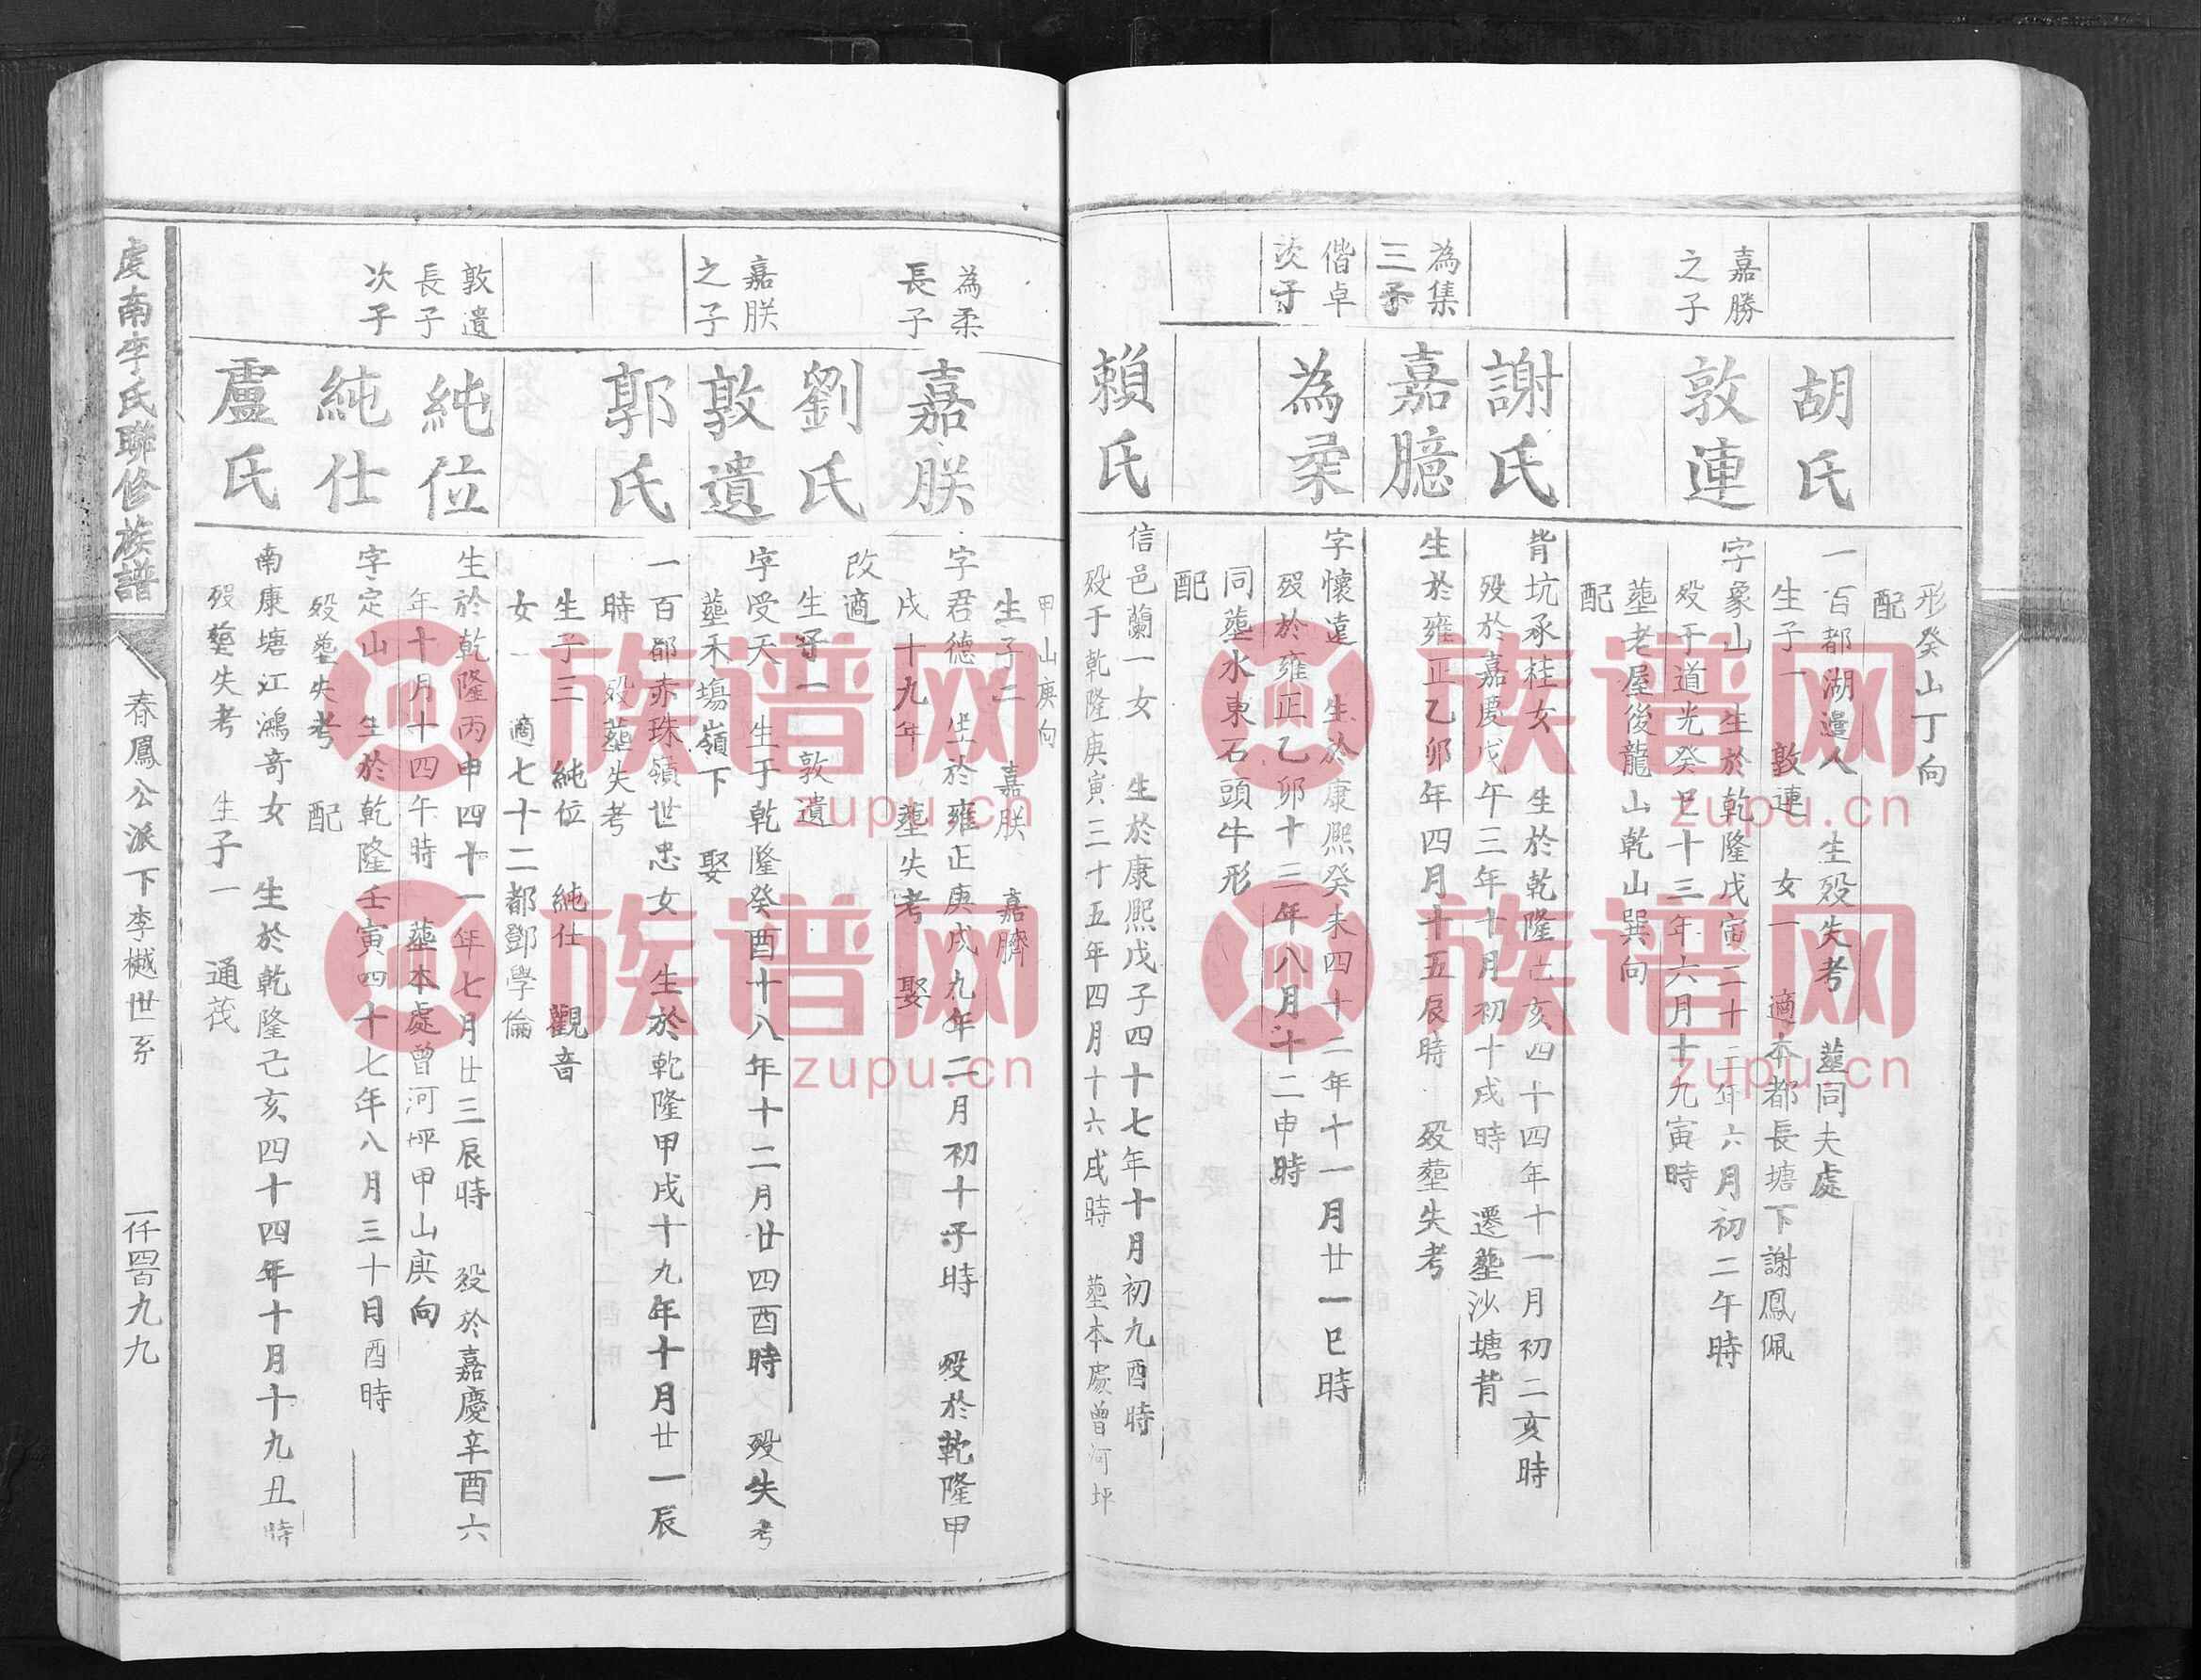 形癸山丁向
配
胡氏
一百都湖邊人 生殁失考 塟同夫處
生子一 敦連 女一 適本都長塘下謝鳳佩
嘉勝
之子
敦連
字象山 生於乾隆戊寅二十三年六月初二午時
殁于道光癸巳十三年六月十九寅時
塟老屋後龍山乾山巽向
配
謝氏
背坑承桂女 生於乾隆己亥四十四年十一月初二亥時
殁於嘉慶戊午三年十月初十戌時 遷塟沙塘背
為集
三子
嘉臆
生於雍正乙卯年四月十五辰時 殁塟失考
偕卓
次子
為柔
字懷遠 生於康熙癸未四十二年十一月廿一巳時
殁於雍正乙卯十三年八月十二申時
同塟水東石頭牛形
配
賴氏
信邑蘭一女 生於康熙戊子四十七年十月初九酉時
殁于乾隆庚寅三十五年四月十六戌時 塟本處曾河坪
甲山庚向
生子二 嘉朕 嘉臍
為柔
長子
嘉朕
字君德 生於雍正庚戌九年二月初十子時 殁於乾隆甲
戌十九年 塟失考 娶
劉氏
改適
生子一 敦遺
嘉朕
之子
敦遺
字受天 生于乾隆癸酉十八年十二月廿四酉時 殁失考
塟禾塲嶺下 娶
郭氏
一百都赤珠嶺世忠女 生於乾隆甲戌十九年十月廿一辰
時 殁塟失考
生子三 純位 純仕 觀音
女一 適七十二都鄧學倫
敦遺
長子
次子
純位
生於乾隆丙申四十一年七月廿三辰時 殁於嘉慶辛酉六
年十月十四午時 塟本處曾河坪甲山庚向
純仕
字定山 生於乾隆壬寅四十七年八月三十日酉時
殁塟失考 配
盧氏
南康塘江鴻奇女 生於乾隆己亥四十四年十月十九丑時
殁塟失考 生子一 通茂
虔南李氏聯修族譜
春鳳公派下李樾世系
一仟四百九九
族谱网
zupu.cn
族谱网
zupu.cn
族谱网
zupu.cn
族谱网
zupu.cn